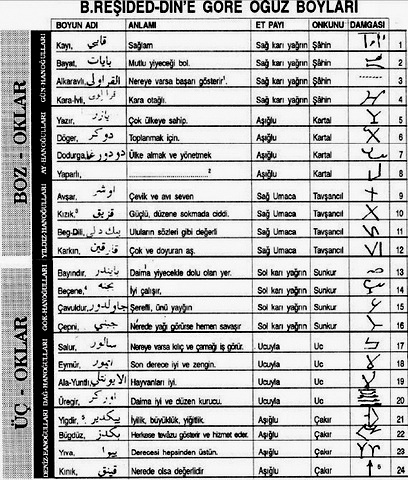 B.REŞİDED-DİN'E GÖRE OĞUZ BOYLARI
BOYUN ADI ANLAMI ET PAYI ONKUNU DAMGASI
BOZ - OKLAR
GÜN-HANOĞULLARI
Kayı, قايى Sağlam Sağ karı yağrın Şâhin 1
Bayat, بايات Mutlu yiyeceği bol. Sağ karı yağrın Şâhin 2
Alkaravlı, القراولى Nereye varsa başarı gösterir¹. Sağ karı yağrın Şâhin 3
Kara-İvli, Kara otağlı. Sağ karı yağrın Şâhin 4
AY-HANOĞULLARI
Yazır, يازر Çok ülkeye sahip. Aşığlu Kartal 5
Döğer, دوكر Toplanmak için. Aşığlu Kartal 6
Dodurga دودورغا Ülke almak ve yönetmek Aşığlu Kartal 7
Yaparlı, 2 Aşığlu Kartal 8
YILDIZ-HANOĞULLARI
Avşar, اوشر Çevik ve avı seven Sağ Umaca Tavşancıl 9
Kızık, قزيق Güçlü, düzene sokmada ciddi. Sağ Umaca Tavşancıl 10
Beg-Dili, بيكدلى Uluların sözleri gibi değerli Sağ Umaca Tavşancıl 11
Karkın, قارقين Çok ve doyuran aş. Sağ Umaca Tavşancıl 12
ÜÇ - OKLAR
GÖK-HANOĞULLARI
Bayındır, بايندر Daima yiyecekle dolu olan yer. Sol karı yağrın Sunkur 13
Beçene, بجنه İyi çalışır, Sol karı yağrın Sunkur 14
Çavuldur, جاولدور Şerefli, ünü yaygın Sol karı yağrın Sunkur 15
Çepni, جبنى Nerede yağı görürse hemen savaşır Sol karı yağrın Sunkur 16
DAĞ-HANOĞULLARI
Salur, سالور Nereye varsa kılıç ve çamağı iş görür. Ucuyla Uc 17
Eymür, ايمور Son derece iyi ve zengin. Ucuyla Uc 18
Ala-Yuntlı, الايونتلى Hayvanları iyi. Ucuyla Uc 19
Üregir, اوركر Daima iyi ve düzen kurucu. Ucuyla Uc 20
DENİZ-HANOĞULLARI
Yigdir, ⁵ ييكدير İyilik, büyüklük, yiğitlik. Aşığlu Çakır 21
Bügdüz, بكدز Herkese tevâzu gösterir ve hizmet eder. Aşığlu Çakır 22
Yıva, ييوا Derecesi hepsinden üstün. Aşığlu Çakır 23
Kınık, قينق Nerede olsa değerlidir Aşığlu Çakır 6 24